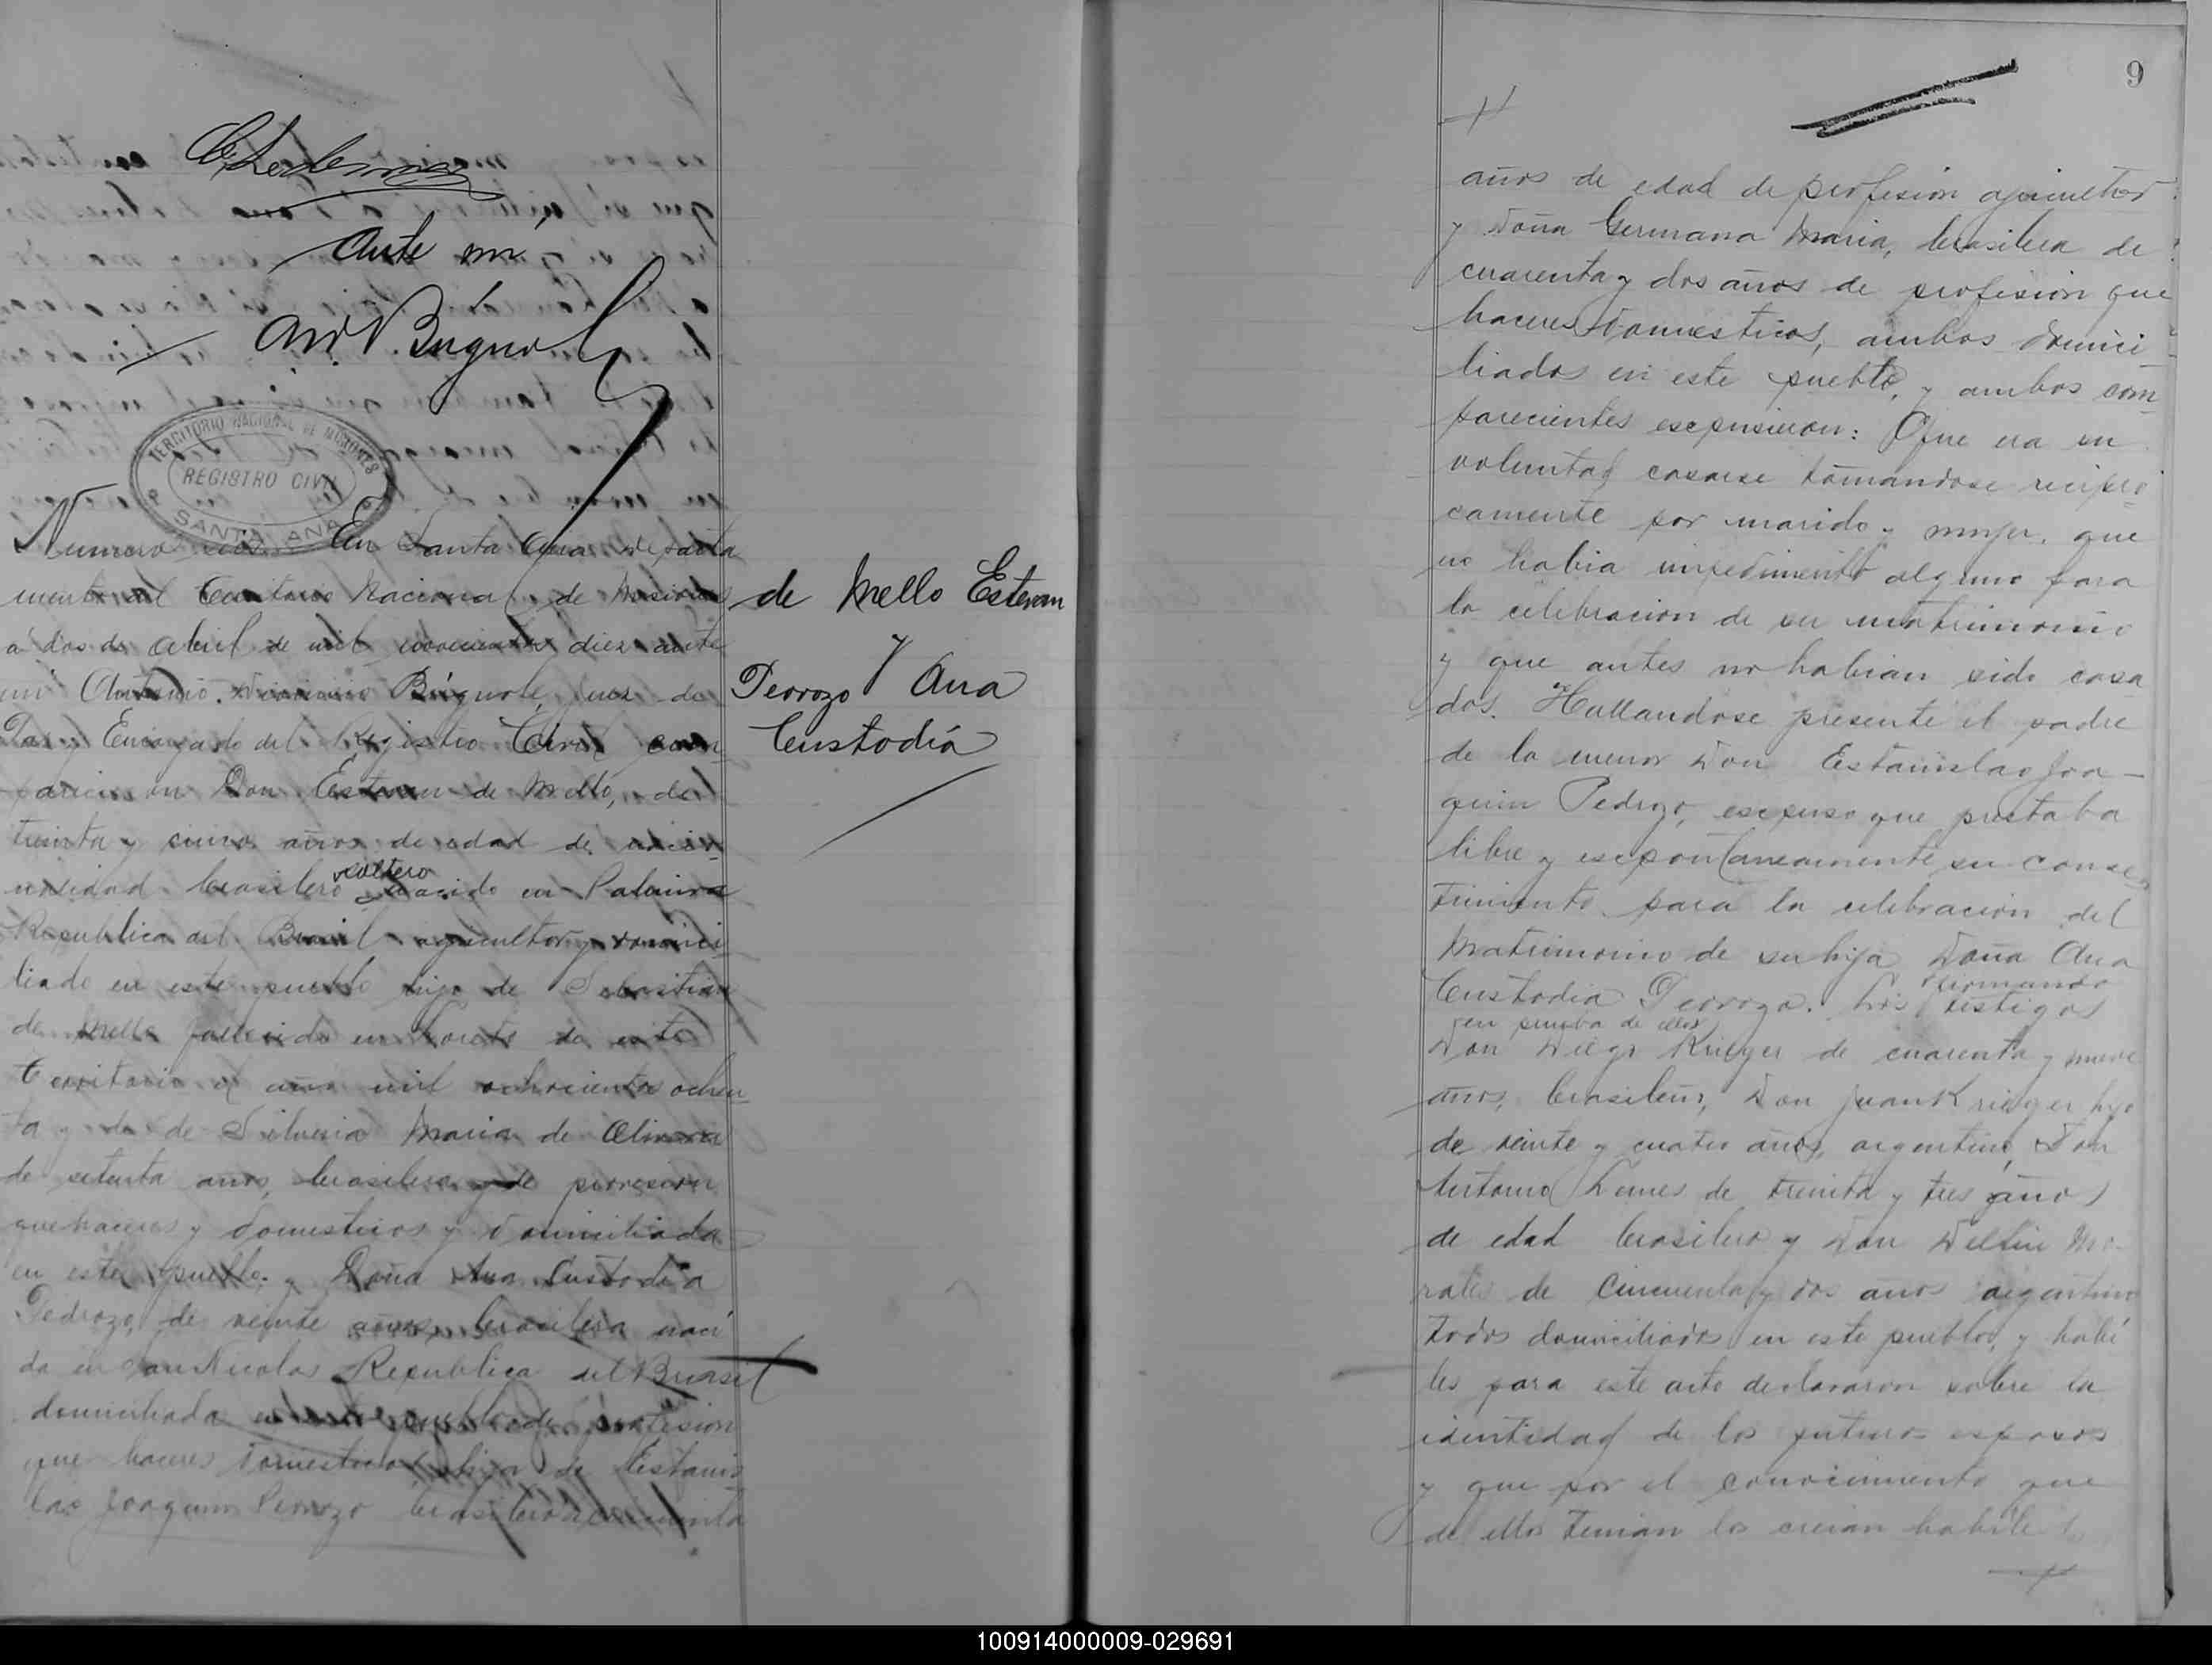 Ante mi
TERRITORIO NACIONAL DE MISIONES
REGISTRO CIVIL
SANTA ANA
Numero En Santa Ana departa
mento del Territorio Nacional de Misiones
a dos de Abril de mil novecientos diez ante
mi Antonio Búgnole, Juez de
Paz y Encargado del Registro Civil com
parecieron Don Estevan de Mello, de
treinta y cinco años de edad de nacio
nalidad brasilero soltero nacido en Palmira
Republica del Brasil agricultor y domici
liado en este pueblo hijo de Sebastian
de Mello fallecido en Loreto de este
Territorio el año mil ochocientos ochen
ta y de Silveria Maria de
de setenta años, brasilera y de profesion
quehaceres domesticos y domiciliada
en este pueblo y Doña Ana Custodia
Pedrozo, de veinte años, brasilera naci
da en San Nicolas Republica del Brasil
domiciliada en este pueblo de profesion
que haceres domesticos hija de Estanis
lao Joaquim Perrozo brasilero de cincuenta
de Mello Estevan
y
Perrozo Ana
Custodia
9
años de edad de profesion agricultor
y Doña Germana Maria, brasilera de
cuarenta y dos años de profesion que
haceres domesticos, ambos domici
liados en este pueblo, y ambos com
parecientes expusieron: Que era su
voluntad casarse tomandose recipro
camente por marido y mujer, que
no habia impedimento alguno para
la celebracion de su matrimonio
y que antes no habian sido casa
dos. Hallandose presente el padre
de la menor Don Estanislao Joa-
quin Pedrozo, expuso que prestaba
libre y espontaneamente su consen
timiento para la celebracion del
Matrimonio de su hija Doña Ana
Custodia Perrozo. firmando
en prueba de ello Los testigos
Don Diego Krieger de cuarenta y nueve
años, brasilero, Don Juan Krieger hijo
de veinte y cuatro años, argentino, Don
Antonio Lemes de treinta y tres años
de edad brasilero y Don Delfin Mo
rales de cincuenta y dos años argentino
todos domiciliados en este pueblo, y habi
les para este acto declararon sobre la
identidad de los futuros esposos
y que por el conocimiento que
de ellos tenian los creian habiles
100914000009-029691